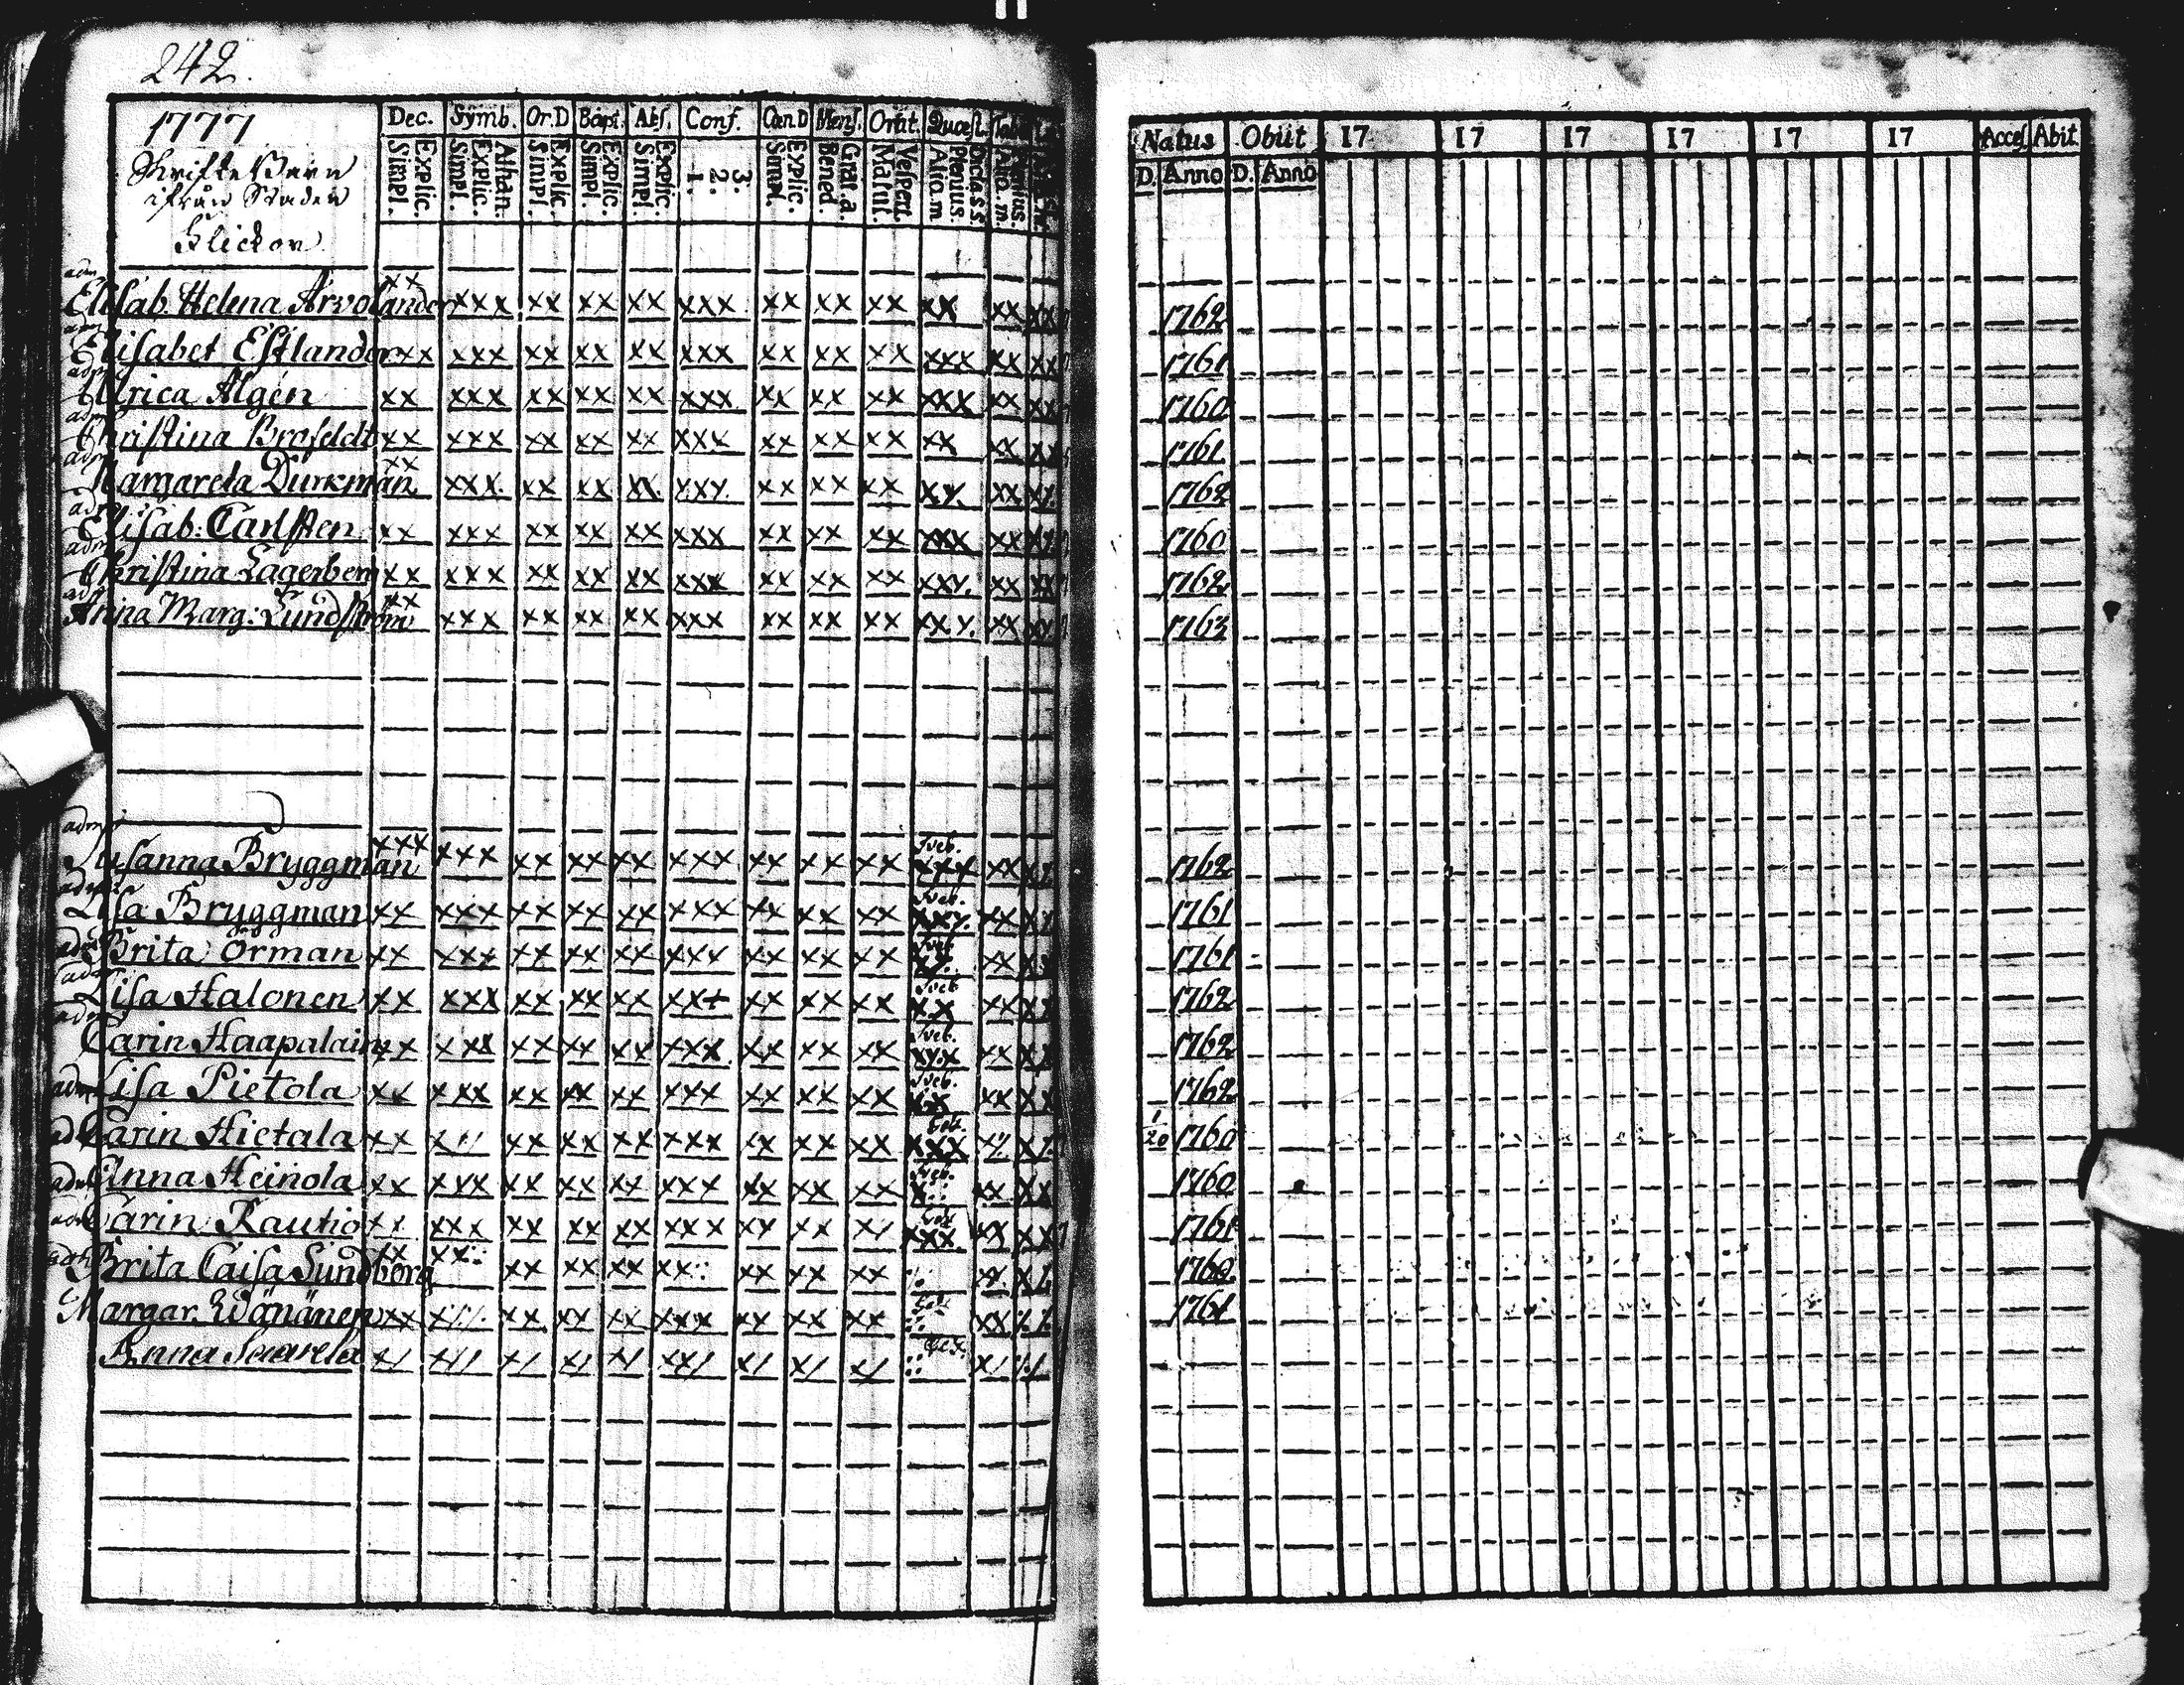 242.
1777
Skrifte Barn
ifrån Staden
Flickor
Dec. Symb. Or.D Bapt. Abs. Conf. Cœn.D Mens. Orat. Quæst.
Explic. Simpl. Athan. Explic. Simpl. Explic. Simpl. Explic. Simpl. Explic. Simpl. 3. 2. 1. Explic. Simpl. Grat. a. Bened. Vespert. Matut. Dicta s.s. Plenius. Aliq. m.
Natus Obiit 17 17 17 17 17 17 Acces. Abit.
D. Anno D. Anno
adm
Elisab. Helena Arvolander xx xxx xx xx xx xxx xx xx xx xx xx xx 1762
adm
Elisabet Estlander xx xxx xx xx xx xxx xx xx xx xxx xx xx 1761
adm
Ulrica Algén xx xxx xx xx xx xxx xx xx xx xxx xx xx 1760
adm
Christina Brofeldt xx xxx xx xx xx xxx xx xx xx xx xx xx 1761
adm
Margareta Durkman xx xxx xx xx xx xxx xx xx xx xx xx xx 1762
adm
Elisab. Carlsten xx xxx xx xx xx xxx xx xx xx xxx xx xx 1760
adm
Christina Lagerberg xx xxx xx xx xx xxx xx xx xx xxx xx xx 1762
adm
Anna Marg: Lundström xx xxx xx xx xx xxx xx xx xx xxx xx xx 1763
adm
Susanna Bryggman xxx xxx xx xx xx xxx xx xx xx Sveb. xxx xx xx 1762
adm
Lisa Bryggman xx xxx xx xx xx xxx xx xx xx Sveb. xxx xx xx 1761
adm Brita Örman xx xxx xx xx xx xxx xx xx xx Sveb. xx xx xx 1761
adm
Lisa Halonen xx xxx xx xx xx xxx xx xx xx Sveb xx xx xx 1762
adm
Carin Haapalain xx xxx xx xx xx xxx xx xx xx Sveb. xxx xx xx 1762
adm Lisa Pietola xx xxx xx xx xx xxx xx xx xx Sveb. xx xx xx 1762
adm Carin Hietala xx x// xx xx xx xxx xx xx xx xxx x/ x/ 1/20 1760
adm Anna Heinola xx xxx xx xx xx xxx xx xx xx Sveb. x xx xx 1760
adm Carin Rautio xx xxx xx xx xx xxx xx xx x/ xxx xx xx 1761
adm Brita Caisa Sundberg xx xx xx xx xx xx xx xx xx xx x/ 1760
Margar. Wänänen xx x// xx xx xx xxx xx xx xx xx // 1761
Anna x/ x// x/ x/ x/ xx/ x/ x/ x/ x/ //